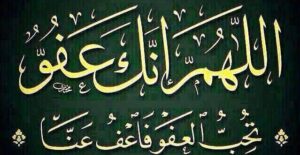 اللهُمَّ إِنَّكَ عَفُوٌّ
تُحِبُّ الْعَفْوَ فَاعْفُ عَنَّا